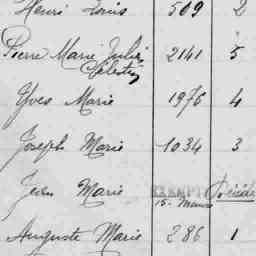 Henri Louis 509 2
Pierre Marie Julien 2141 5
Célestin
Yves Marie 1976 4
Joseph Marie 1034 3
Jean Marie EXEMPT Décédé
15-
Auguste Marie 286 1